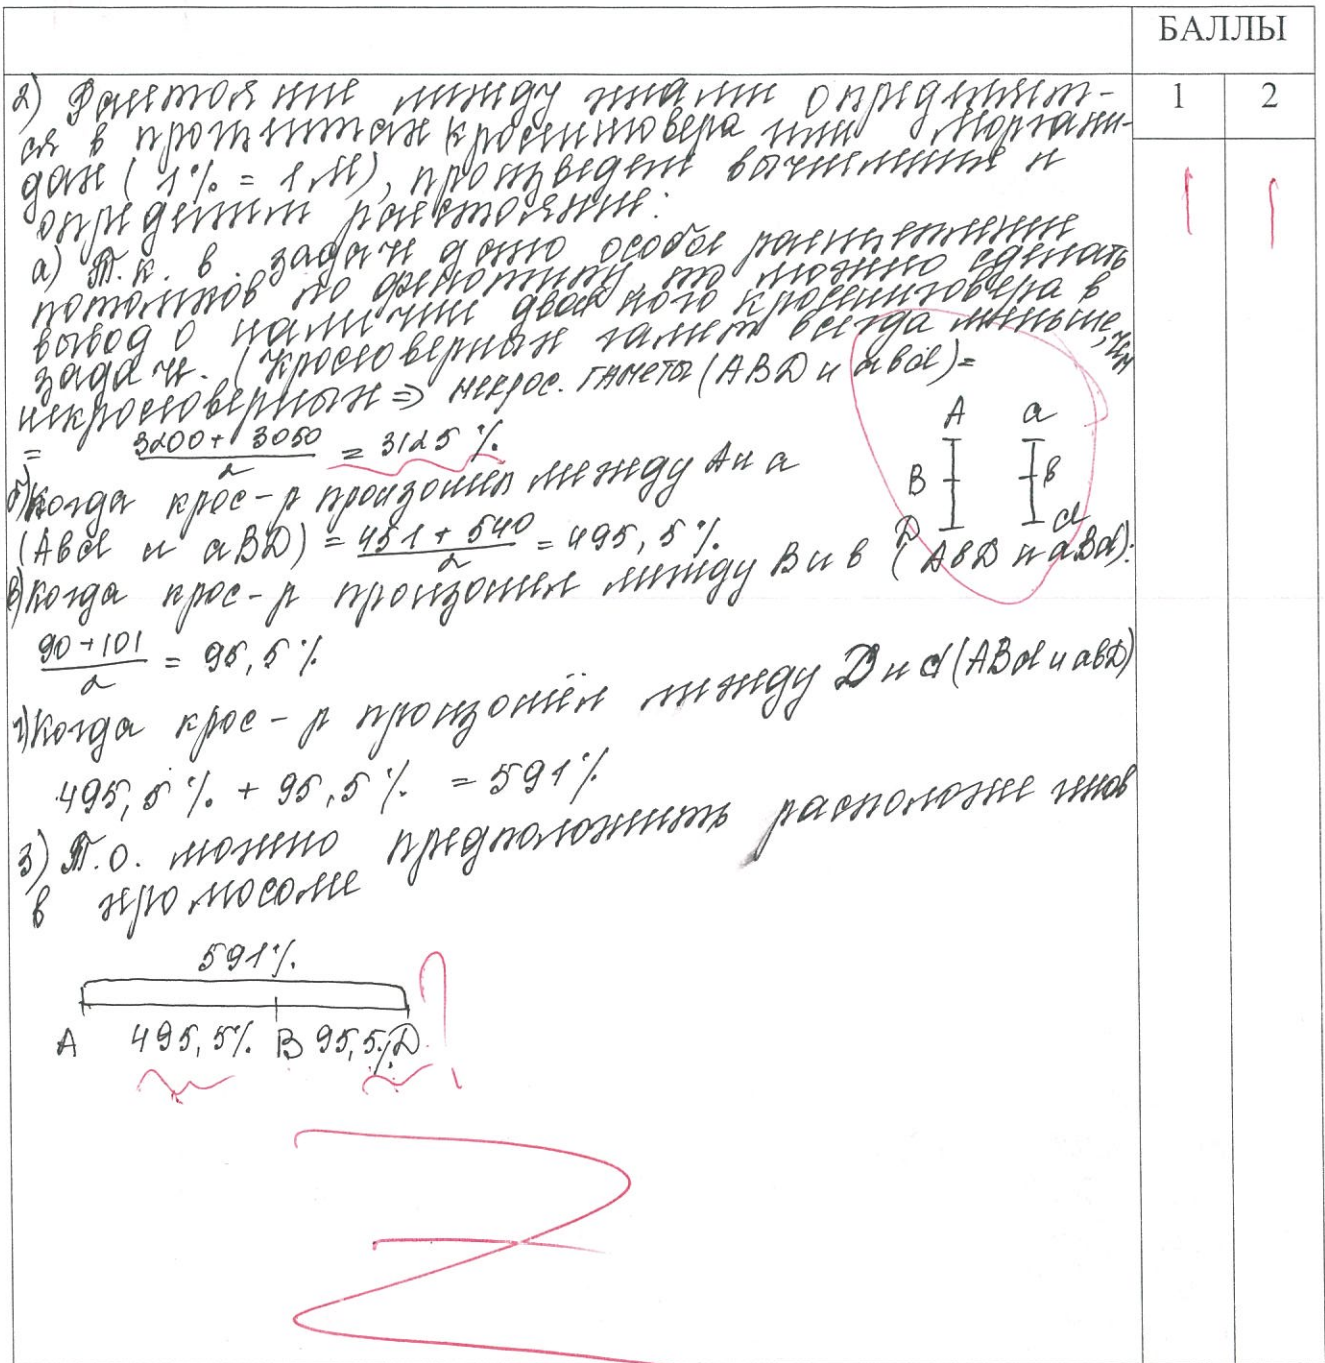 БАЛЛЫ
1 2
2) Расстояние между генами определяет-
ся в процентах кроссинговера или Моргани-
дах (1% = 1М), произведём вычисления и
определим расстояние:
а) Т.к. в задаче дано особое расщепление
потомков по фенотипу то можно сделать
вывод о наличии двойного кроссинговера в
задаче. (Кроссоверных гамет всегда меньше, чем
некроссоверных => некрос. гаметы (ABD и abd) =
= 3200 + 3050 / 2 = 3125 %
б) Когда крос-р произошёл между A и a
(Abd и aBD) = 451 + 540 / 2 = 495,5 %
в) Когда крос-р произошёл между B и b (AbD и aBd):
90 + 101 / 2 = 95,5 %
г) Когда крос-р произошёл между D и d (ABd и abD)
495,5 % + 95,5 % = 591 %
3) Т.о. можно предположить расположе генов
в хромосоме
591 %
A 495,5% B 95,5% D
A a
B b
D d
?